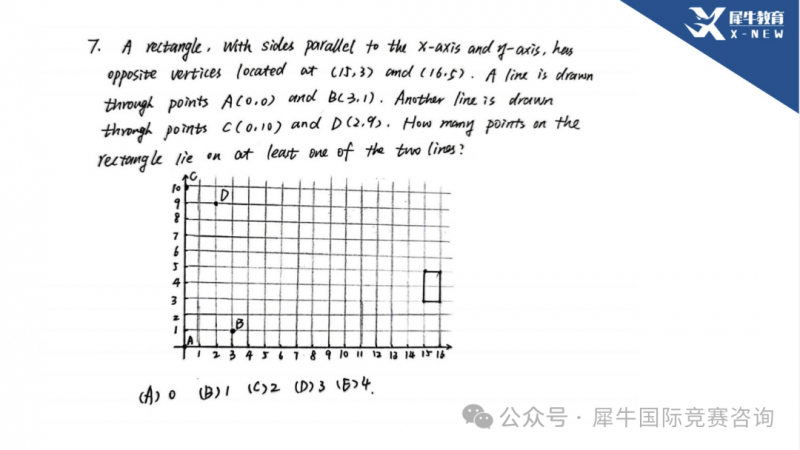 犀牛教育
X-NEW
7. A rectangle, with sides parallel to the x-axis and y-axis, has
opposite vertices located at (15,3) and (16,5). A line is drawn
through points A(0,0) and B(3,1). Another line is drawn
through points C(0,10) and D(2,9). How many points on the
rectangle lie on at least one of the two lines?
C
10
D
9
8
7
6
5
4
3
2
1
B
A
1 2 3 4 5 6 7 8 9 10 11 12 13 14 15 16
(A) 0 (B) 1 (C) 2 (D) 3 (E) 4.
公众号 · 犀牛国际竞赛咨询